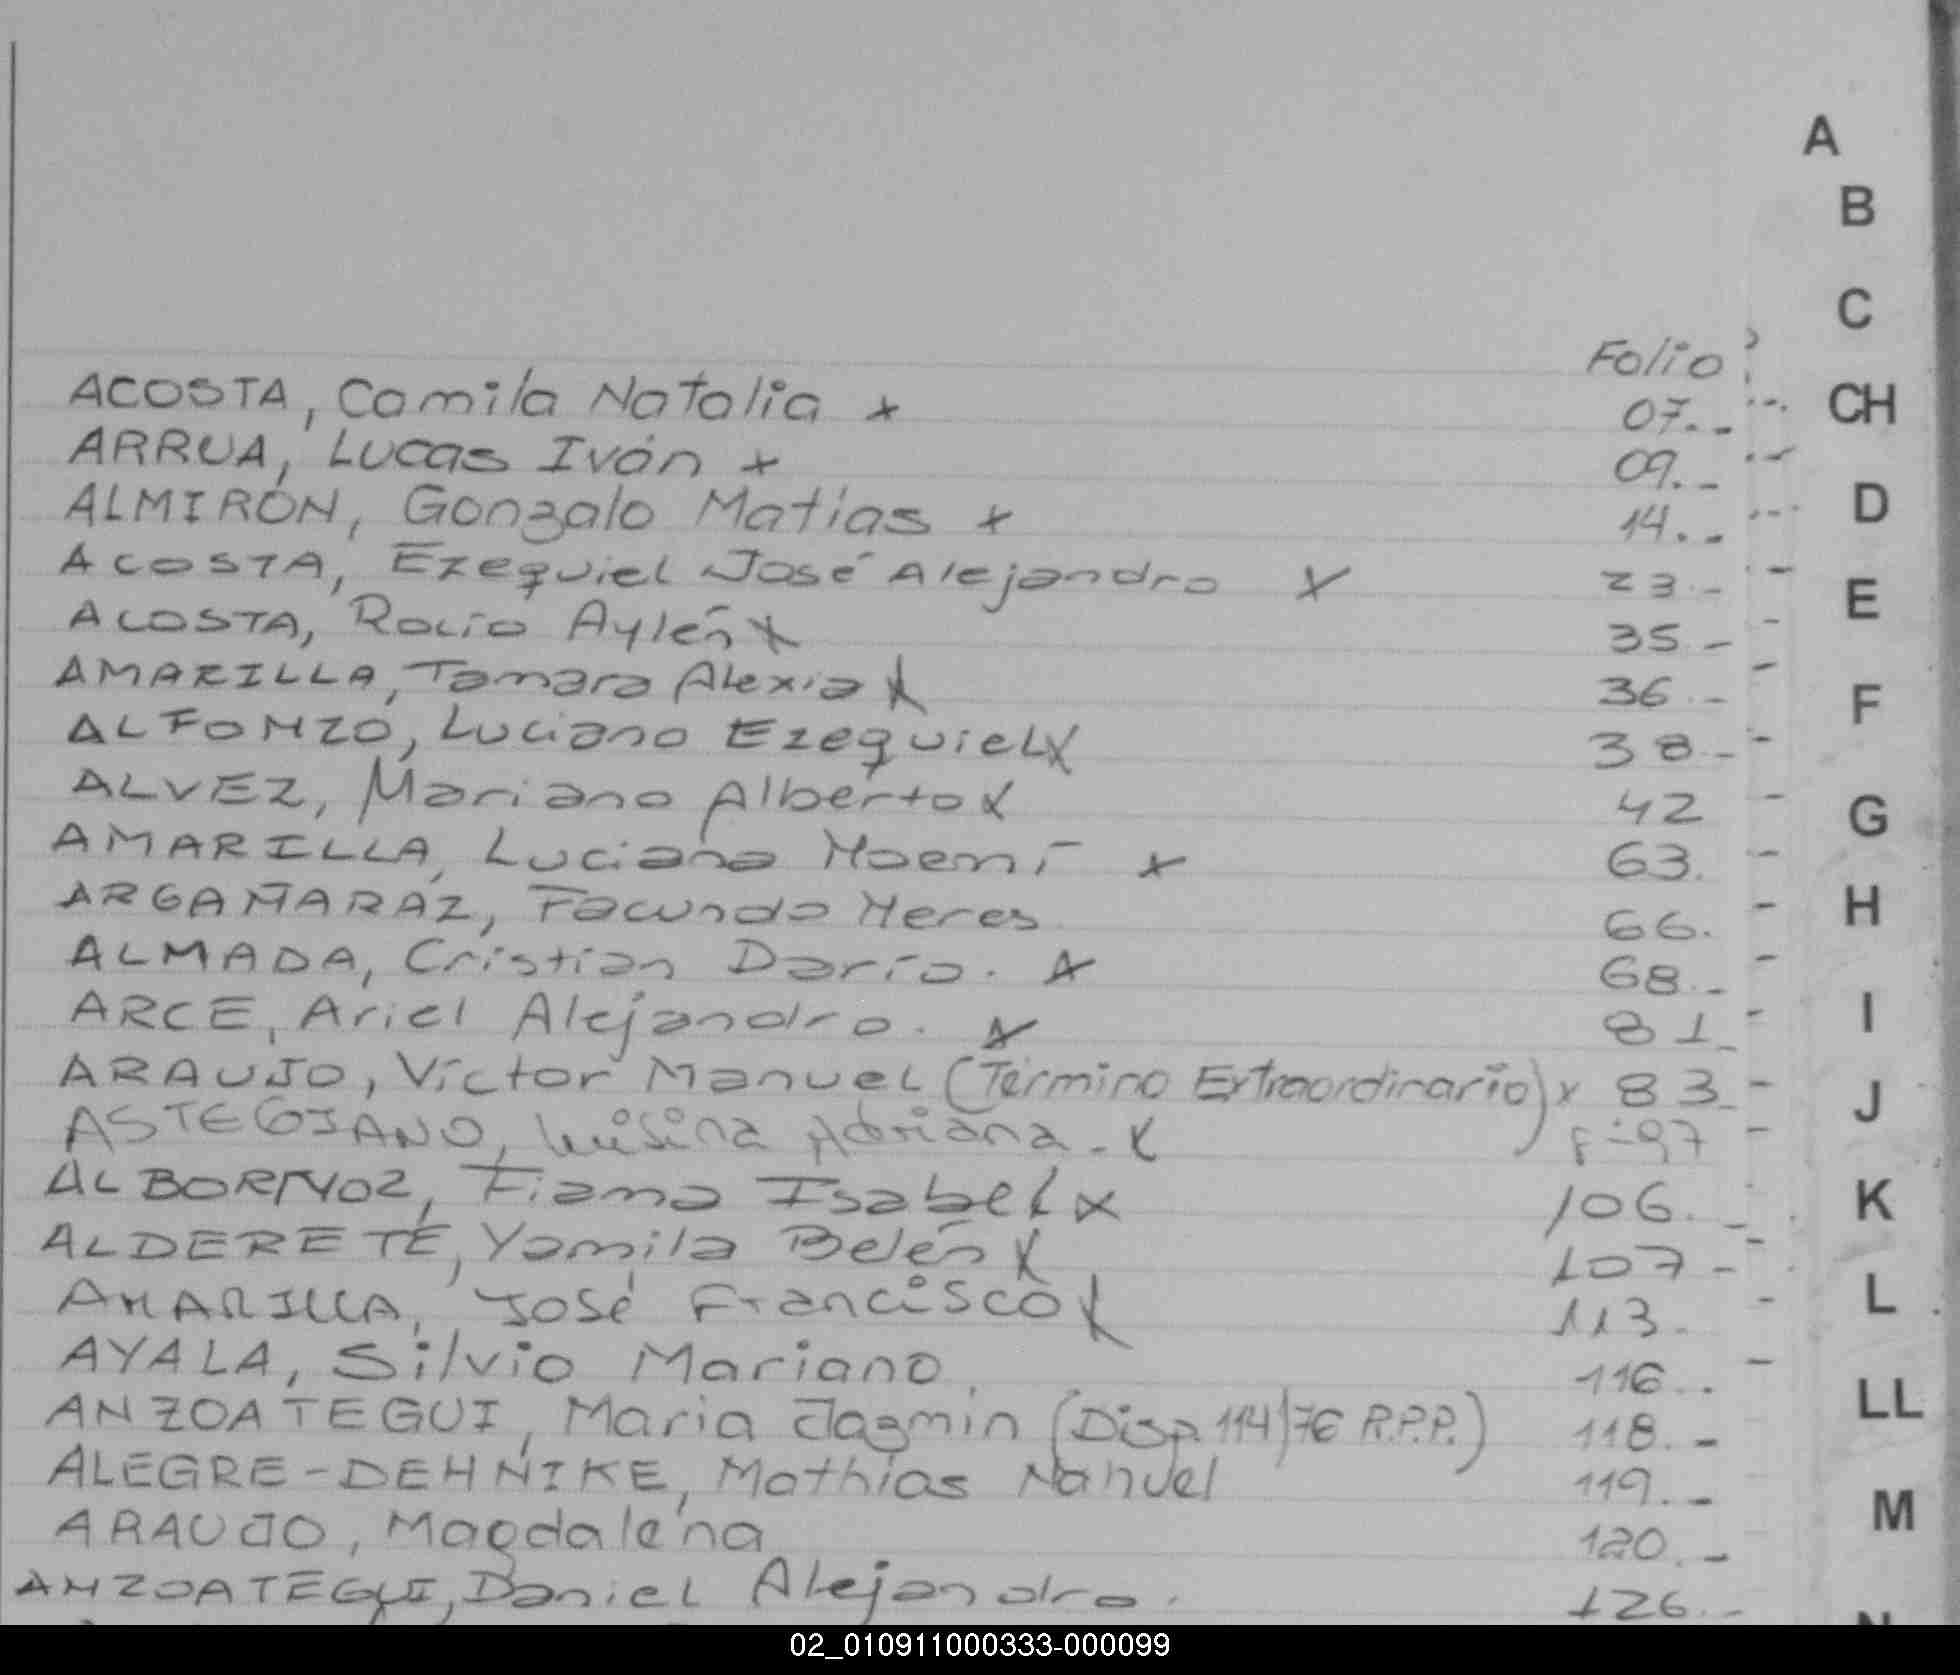 A
B
C
Folio
ACOSTA, Camila Natalia x 07.- CH
ARRUA, Lucas Iván x 09.-
ALMIRÓN, Gonzalo Matías x 14.- D
ACOSTA, Ezequiel José Alejandro x 23.-
ACOSTA, Rocío Aylén x 35.- E
AMARILLA, Tamara Alexia x 36.-
ALFONZO, Luciano Ezequiel x 38.- F
ALVEZ, Mariano Alberto x 42 G
AMARILLA, Luciana Noemí x 63.
ARGAÑARAZ, Facundo Neres 66. H
ALMADA, Cristian Darío. x 68.-
ARCE, Ariel Alejandro. x 81- I
ARAUJO, Víctor Manuel (Término Extraordinario) x 83- J
ASTEGIANO, Luisina Adriana.- x F-97
ALBORNOZ, Fiama Isabel x 106.- K
ALDERETE, Yamila Belén x 107-
AMARILLA, José Francisco x 113- L
AYALA, Silvio Mariano. 116.-
ANZOATEGUI, Maria Jazmin (Disp. 114/76 R.P.P.) 118.- LL
ALEGRE-DEHNIKE, Mathías Nahuel 119.-
ARAUJO, Magdalena 120.- M
ANZOATEGUI, Daniel Alejandro. 126.-
N
02_010911000333-000099